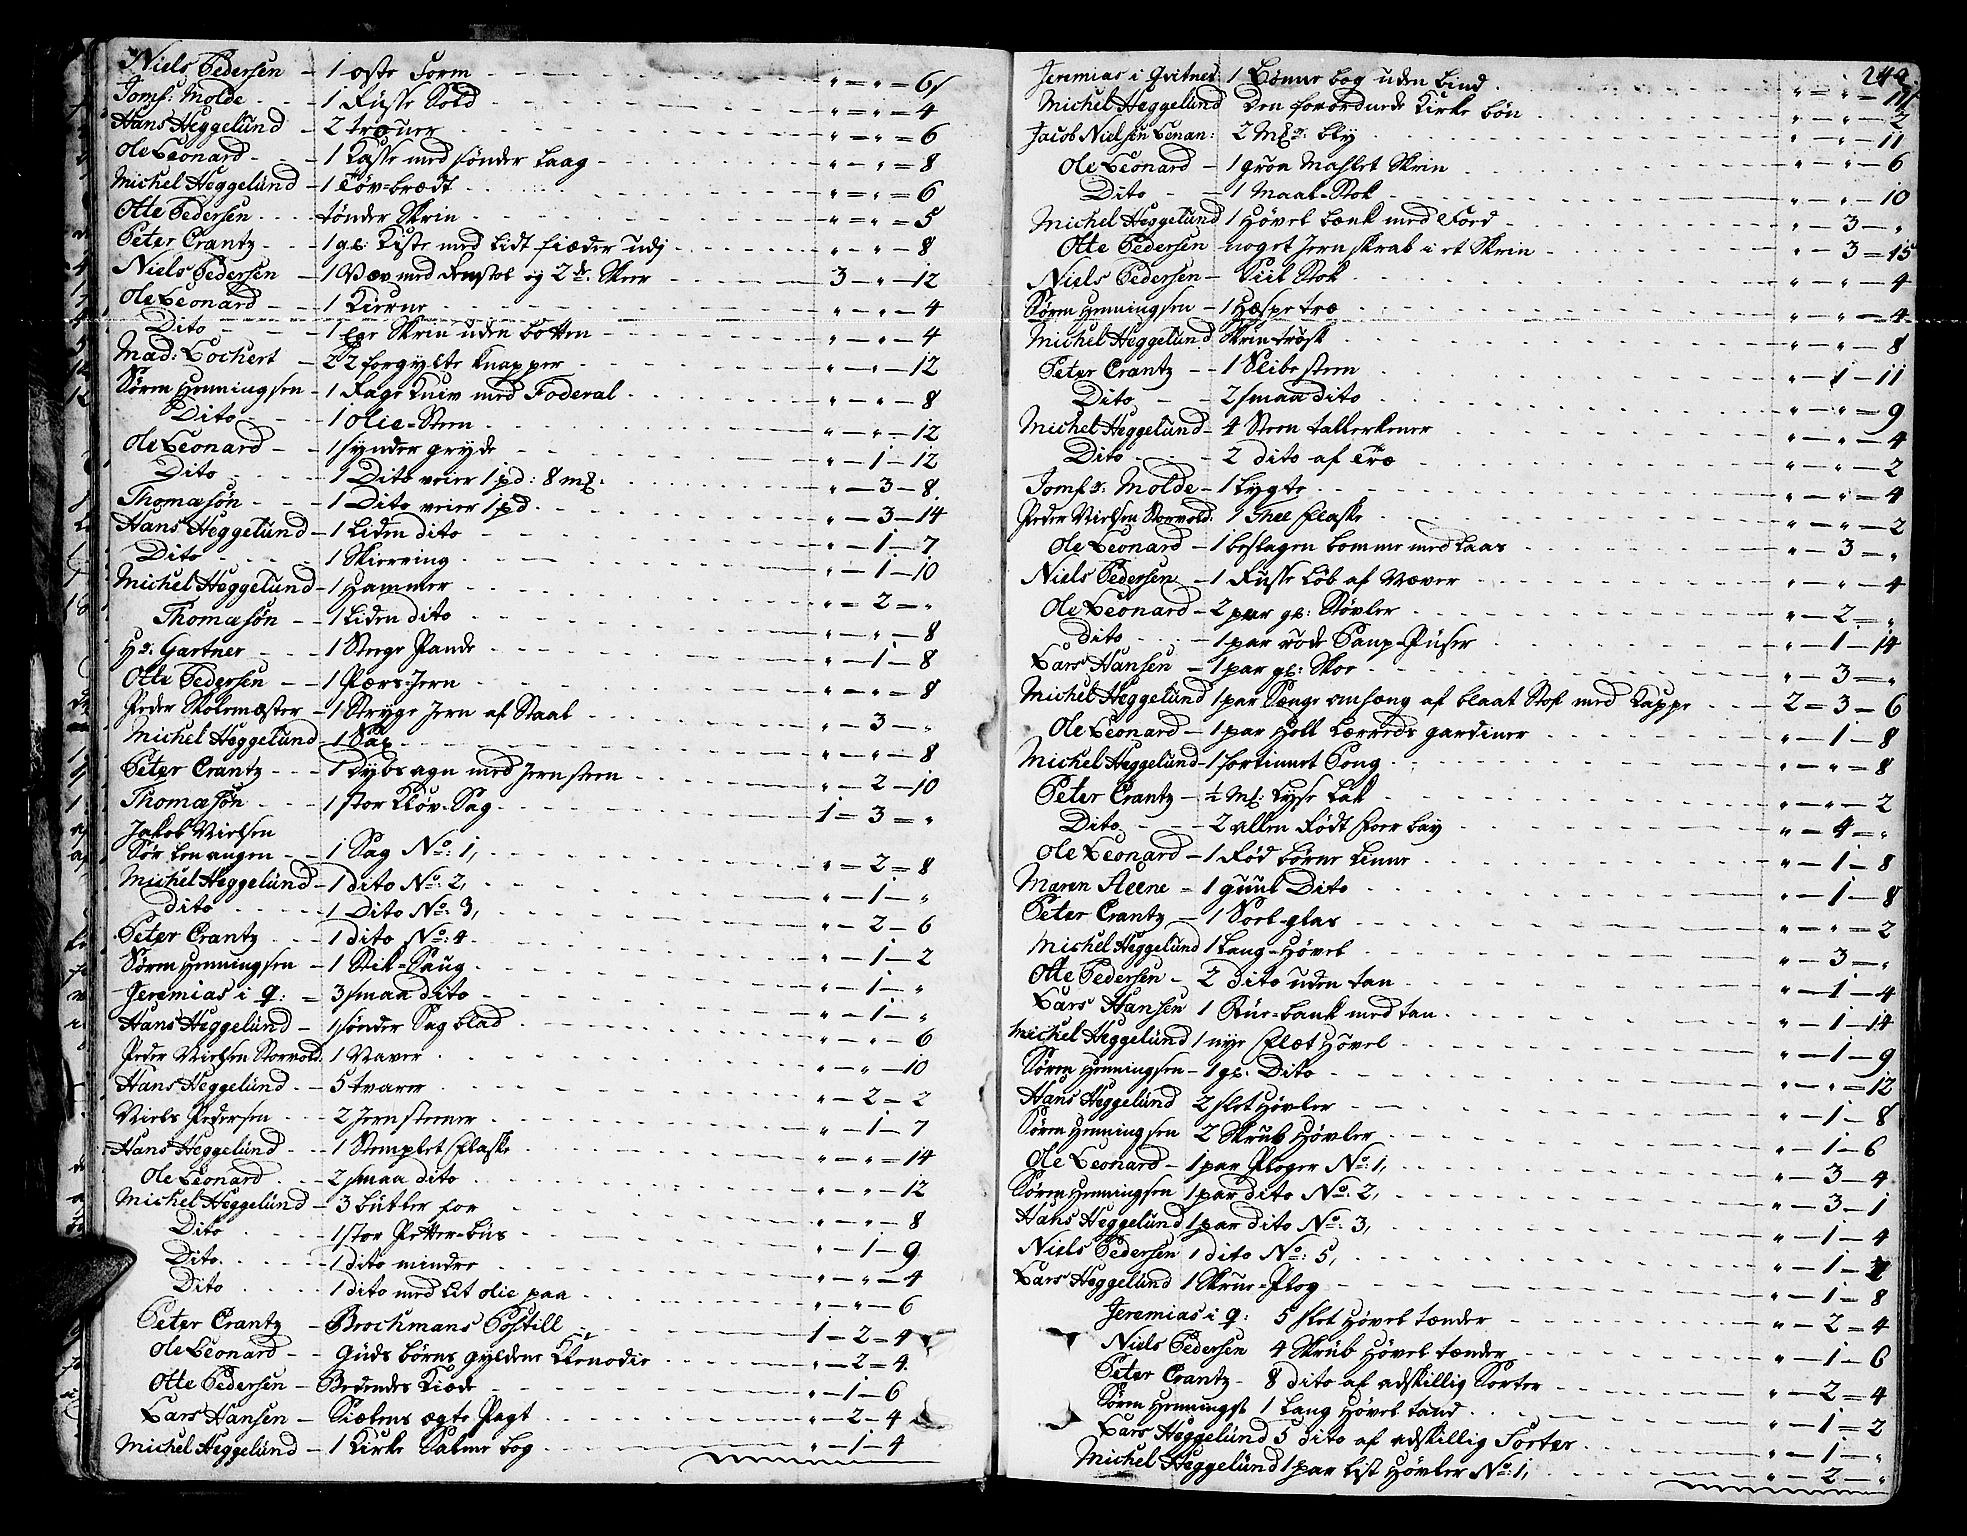 Niels Pedersen - 1 oste Form " = " = 6 ß
Jomf: Molde - 1 Russe Sold " = " = 4
Hans Heggelund - 2 trouer " = " = 6
Ole Leonard - 1 Kasse med sønder Laag " - " - 8
Michel Heggelund - 1 Tøv-brædt " = " = 6
Otte Pedersen tønder Skrin " = " = 5
Peter Crantz - 1 gl: Kiste med Lidt fiæder udj " - " - 8
Niels Pedersen - 1 Væv med Remstol og 2 st: Skeer 3 - " - 12
Ole Leonard - 1 Kierne " - " - 4
Dito - 1 Ege Skrin uden botten " - " - 4
Mad: Lochert - 22 forgylte Knapper " - " - 12
Sørren Henningsen - 1 Rage Kniv med Foderal " - " - 8
Dito - 1 olie-Steen " - " - 12
Ole Leonard - 1 synder gryde " - 1 - 12
Dito 1 Dito veier 1 pd: 8 mk: " - 3 - 8
Thomasøn - 1 Dito veier 1 pd " - 3 - 14
Hans Heggelund - 1 Liden dito " - 1 - 7
Dito 1 Skierving " - 1 - 10
Michel Heggelund - 1 Hammer " - 2 = "
Thomasøn - 1 Liden dito " - " - 8
Hr: Gartner - 1 Stege Pande " - 1 - 8
Otte Pedersen - 1 Pærs-Jern " - " - 8
Peder Skolemæster - 1 Stryge Jern af Staal " - 3 - "
Michel Heggelund - 1 Sax " - " - 8
Peter Crantz - 1 Dybsagn med Jernsteen " - 2 - 10
Thomasøn - 1 stor Kløv-Sag 1 - 3 = "
Jakob Nielsen
Sør Lenangen - 1 Sag No: 1, " = 2 = 8
Michel Heggelund - 1 dito No: 2, " - 1 - "
Dito 1 Dito No: 3, " - 2 - 6
Peter Crantz - 1 dito No: 4 " - 1 - 2
Sørren Henningsen - 1 Stik-Saug " - 1 - "
Jeremias i Q: = 3 smaa dito " - 1 - "
Hans Heggelund - 1 sønder Sag blad " - " - 6
Peder Nielsen Storvold: 1 Naver " - " - 10
Hans Heggelund - 5 tvarer " - 2 - 2
Niels Pedersen - 2 Jernsteener " - 1 - 7
Hans Heggelund - 1 Stemplet flaske " - " = 14
Ole Leonard - 2 smaa dito " - " - 12
Michel Heggelund - 3 butler for " - " - 8
Dito 1 stor Petter-bus " - 1 - 9
Dito 1 dito mindre " - " - 4
Dito 1 dito med Lit olie paa " - " - 6
Peter Crantz - Brochmans Postill 1 - 2 - 4
Ole Leonard - Guds børns gyldene Klenodie " - 2 = 4
Otte Pedersen - Bedendes Kiæde " - 1 - 6
Lars Hansen - Siælens ægte Pagt " - 2 - 4
Michel Heggelund - 1 Kirke Salme bog " - 1 - 4
249
Jeremias i Qvitnes: 1 Bønne bog uden bind " = " = 11 ß
Michel Heggelund Den forordnede Kirke bøn " - " - 2
Jacob Nielsen Lenan: 2 Mk: bly " - " - 11
Ole Leonard - 1 grøn Mahlet Skrin " - " - 6
Dito - 1 Maal-Stok " - " - 10
Michel Heggelund 1 Høvel bænk med Foed " - 3 - "
Otte Pedersen noget Jern skrab i et Skrin " - 3 = 15
Niels Pedersen - Viil Stok " - " - 4
Sørren Henningsen - 1 Hæspe træ " - " - 4
Michel Heggelund Skrin trøsk " - " - 8
Peter Crantz - 1 Slibe steen " - 1 - 11
Dito - 2 smaa dito " - " = 9
Michel Heggelund - 4 Steen tallerkener " - " = 4
Dito 2 dito af Træ " - " - 2
Jomfr: Molde - 1 Lygte " - " - 4
Peder Nielsen Storvold: 1 Thee flaske " - " - 2
Ole Leonard - 1 beslagen bomme med Laas " - 3 - "
Niels Pedersen - 1 Russe Løb af Næver " - " - 4
Ole Leonard - 2 par gl: Støvler " - 2 - "
Dito 1 par røde Pamp-Puser " - 1 - 14
Lars Hansen - 1 par gl: Skoe " - 3 - "
Michel Heggelund 1 par Senge omhæng af blaat Stof med Kappe 2 - 3 - 6
Ole Leonard - 1 par Holl Lærreds gardiner " - 1 - 8
Michel Heggelund - 1 fortinnet Pong " - " = 8
Peter Crantz - ½ Mk: Lyse Lak " - " - 2
Dito 2 allen Rødt foer bay " - 4 - "
Ole Leonard - 1 Rød børne Lenne " - 1 - 8
Maren Steene - 1 guul Dito " - 1 - 8
Peter Crantz - 1 Soel-glas " - " - 2
Michel Heggelund 1 Lang-Høvel " - 3 - "
Otte Pedersen - 2 dito uden tan " - 1 - 4
Lars Hansen 1 Rue-bank med tan " - 1 - 14
Michel Heggelund 1 nye flæt Høvel " - 1 - 9
Sørren Henningsen - 1 gl: Dito " - " = 12
Hans Heggelund 2 slet Høvler " - 1 - 8
Sørren Henningsen 2 Skrub Høvler " - 1 - 6
Ole Leonard - 1 par Ploger No: 1, " - 3 - 4
Sørren Henningsen 1 par dito No: 2, " - 3 - 1
Hans Heggelund 1 par dito No: 3, " - 1 - 4
Niels Pedersen 1 dito No: 5, " - 1 -
Lars Heggelund 1 Skrue-Plog " - 1 - 8
Jeremias i Q: 5 slet Høvel tænder " - 2 = 4
Niels Pedersen 4 Skrub Høvel tænder " - 1 - 6
Peter Crantz - 8 dito af adskillig Sorter " - 2 = 4
Sørren Henningsen 1 Lang Høvel tand " - 1 = 2
Lars Heggelund 5 dito af adskillig Sorter " - 1 - "
Michel Heggelund 1 par List Høvler No: 1, " - 2 - "